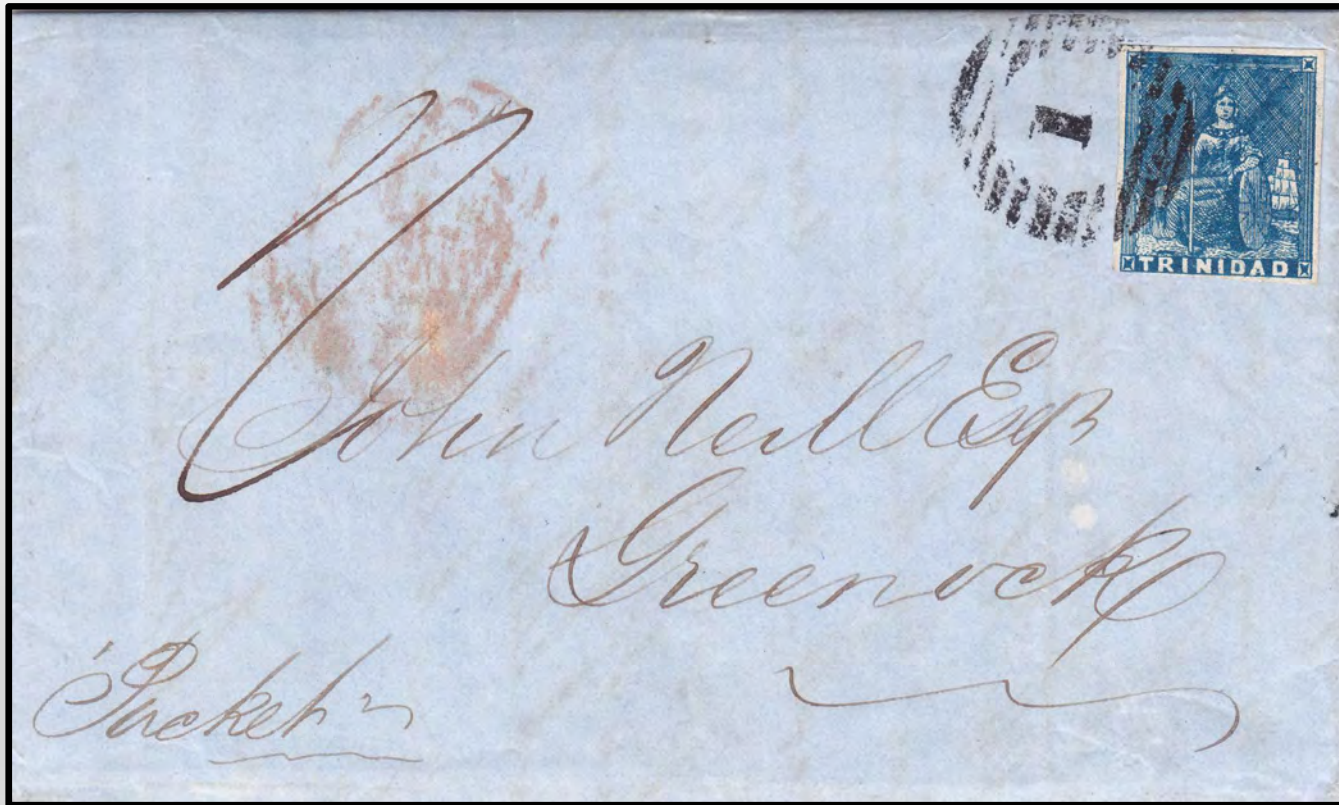 1
TRINIDAD
John Neill Esqr
Greenock
"Packet"